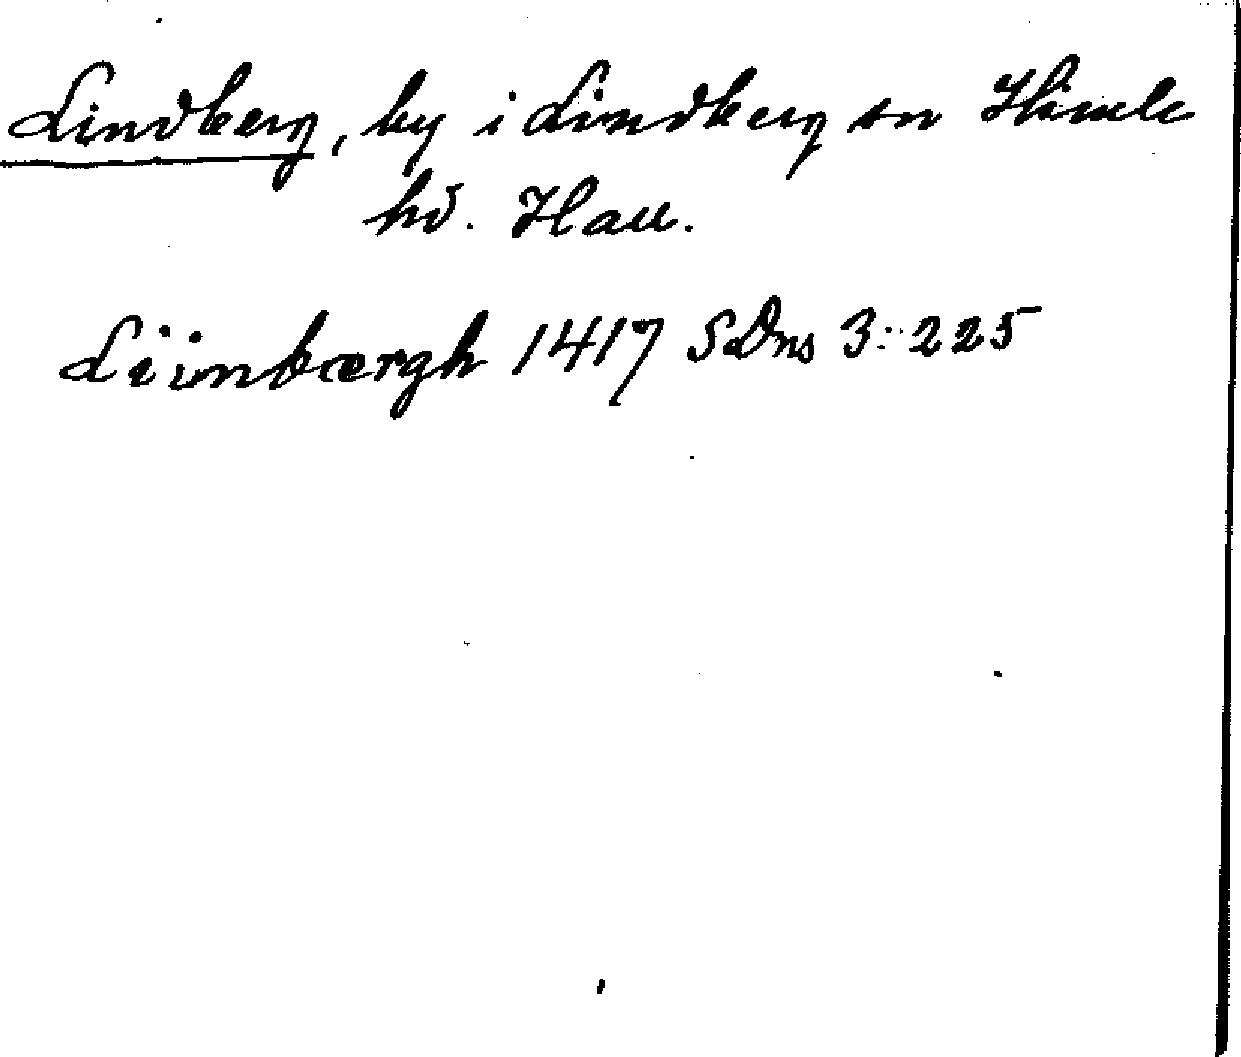 Lindberg, by i Lindberg sn Himle
hd. Hall.
Liinbærgh 1417 SDns 3:225